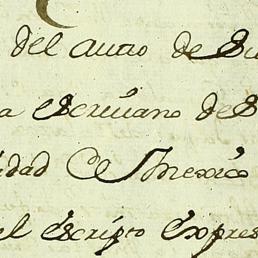 del autto de Su
a Escriuano de S
idad de Mexico
el escripto expres